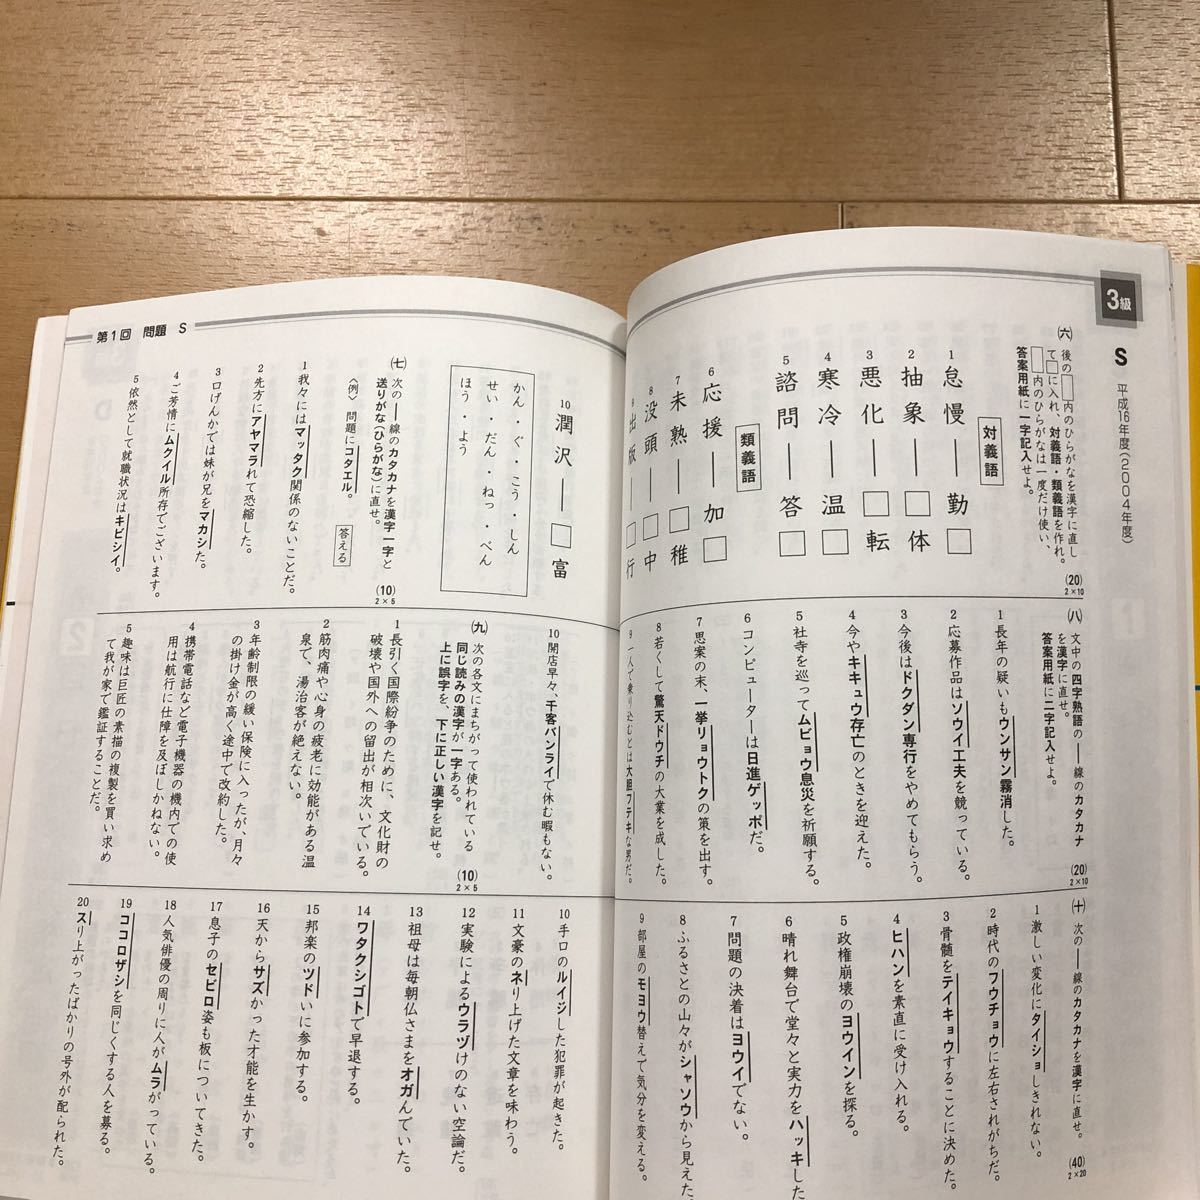 3級
S 平成16年度(2004年度)
(六) 後の□内のひらがなを漢字に直し
て□に入れ、対義語・類義語を作れ。
□内のひらがなは一度だけ使い、
答案用紙に一字記入せよ。
(20)
2×10
対義語
1 怠慢―勤□
2 抽象―□体
3 悪化―□転
4 寒冷―温□
5 諮問―答□
類義語
6 応援―加□
7 未熟―□稚
8 没頭―□中
9 出版―□行
(八) 文中の四字熟語の―線のカタカナ
を漢字に直せ。
答案用紙に二字記入せよ。
(20)
2×10
1 長年の疑いもウンサン霧消した。
2 応募作品はソウイ工夫を競っている。
3 今後はドクダン専行をやめてもらう。
4 今やキキュウ存亡のときを迎えた。
5 社寺を巡ってムビョウ息災を祈願する。
6 コンピューターは日進ゲッポだ。
7 思案の末、一挙リョウトクの策を出す。
8 若くして驚天ドウチの大業を成した。
9 一人で乗り込むとは大胆フテキな男だ。
(十) 次の―線のカタカナを漢字に直せ。
(40)
2×20
1 激しい変化にタイショしきれない。
2 時代のフウチョウに左右されがちだ。
3 骨髄をテイキョウすることに決めた。
4 ヒハンを素直に受け入れる。
5 政権崩壊のヨウインを探る。
6 晴れ舞台で堂々と実力をハッキした
7 問題の決着はヨウイでない。
8 ふるさとの山々がシャソウから見えた
9 部屋のモヨウ替えで気分を変える。
第1回 問題 S
10 潤沢―□富
かん・ぐ・こう・しん
せい・だん・ねっ・べん
ほう・よう
(七) 次の―線のカタカナを漢字一字と
送りがな(ひらがな)に直せ。
(10)
2×5
〈例〉問題にコタエル。 答える
1 我々にはマッタク関係のないことだ。
2 先方にアヤマラれて恐縮した。
3 口げんかでは妹が兄をマカシた。
4 ご芳情にムクイル所存でございます。
5 依然として就職状況はキビシイ。
10 開店早々、千客バンライで休む暇もない。
(九) 次の各文にまちがって使われている
同じ読みの漢字が一字ある。
上に誤字を、下に正しい漢字を記せ。
(10)
2×5
1 長引く国際紛争のために、文化財の
破壊や国外への留出が相次いでいる。
2 筋肉痛や心身の疲老に効能がある温
泉で、湯治客が絶えない。
3 年齢制限の緩い保険に入ったが、月々
の掛け金が高く途中で改約した。
4 携帯電話など電子機器の機内での使
用は航行に仕障を及ぼしかねない。
5 趣味は巨匠の素描の複製を買い求め
て我が家で鑑証することだ。
10 手口のルイジした犯罪が起きた。
11 文豪のネり上げた文章を味わう。
12 実験によるウラヅけのない空論だ。
13 祖母は毎朝仏さまをオガんでいた。
14 ワタクシゴトで早退する。
15 邦楽のツドいに参加する。
16 天からサズかった才能を生かす。
17 息子のセビロ姿も板についてきた。
18 人気俳優の周りに人がムラがっている。
19 ココロザシを同じくする人を募る。
20 スり上がったばかりの号外が配られた。